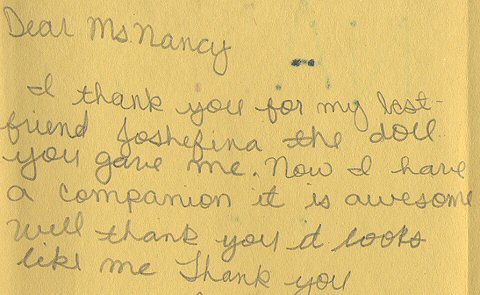 Dear Ms. Nancy
I thank you for my best-
friend Joshefina the doll
you gave me. Now I have
a companion it is awesome
Well thank you it looks
like me Thank you